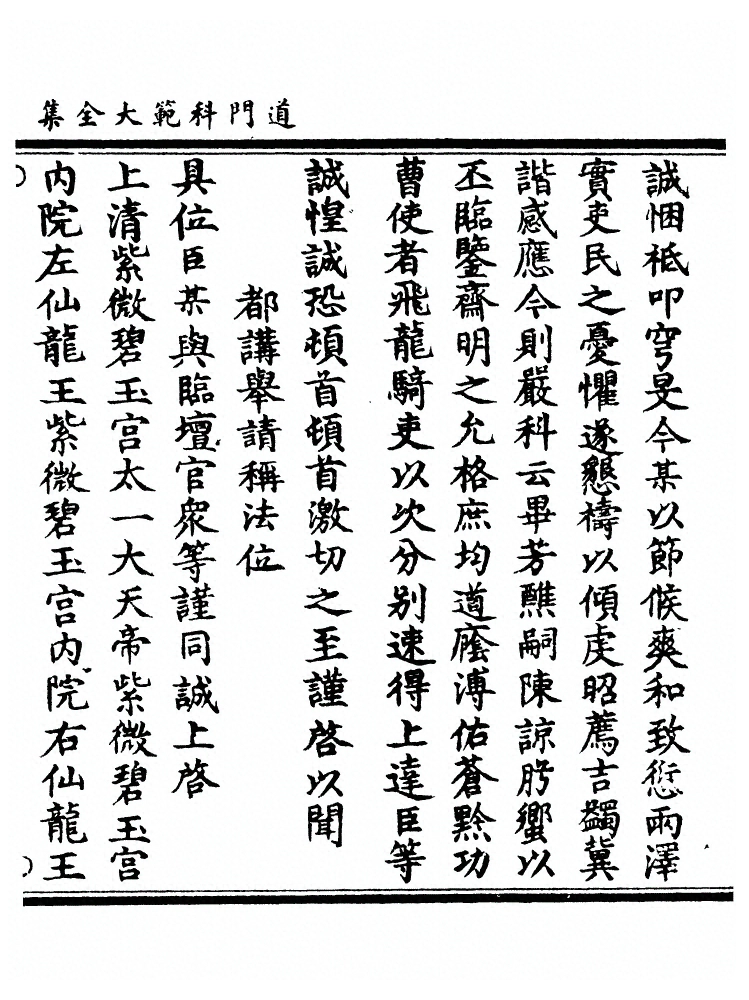 道門科範大全集
誠悃祗叩穹旻今某以節候爽和致愆雨澤
實吏民之憂懼遂懇禱以傾虔昭薦吉蠲冀
諧感應今則嚴科云畢芳醮嗣陳諒肹蠁以
丕臨鑒齋明之允格庶均道廕溥佑蒼黔功
曹使者飛龍騎吏以次分別速得上達臣等
誠惶誠恐頓首頓首激切之至謹啓以聞
都講舉請稱法位
具位臣某與臨壇官衆等謹同誠上啓
上清紫微碧玉宮太一大天帝紫微碧玉宮
内院左仙龍王紫微碧玉宮内院右仙龍王